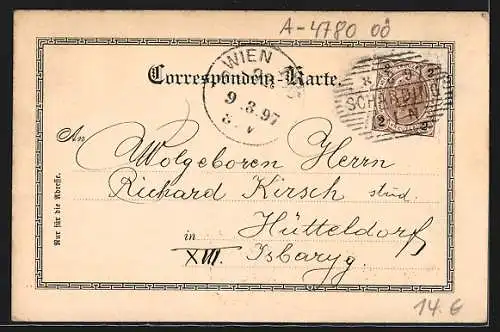 A-4780 OÖ
Correspondenz-Karte.
WIEN
9.3.97
8. V
SCHÄRDING
2 2
2 2
An Wolgeboren Herrn
Richard Kirsch stud.
Hütteldorf
in
XIII. Isbaryg.
Nur für die Adresse.
14.€